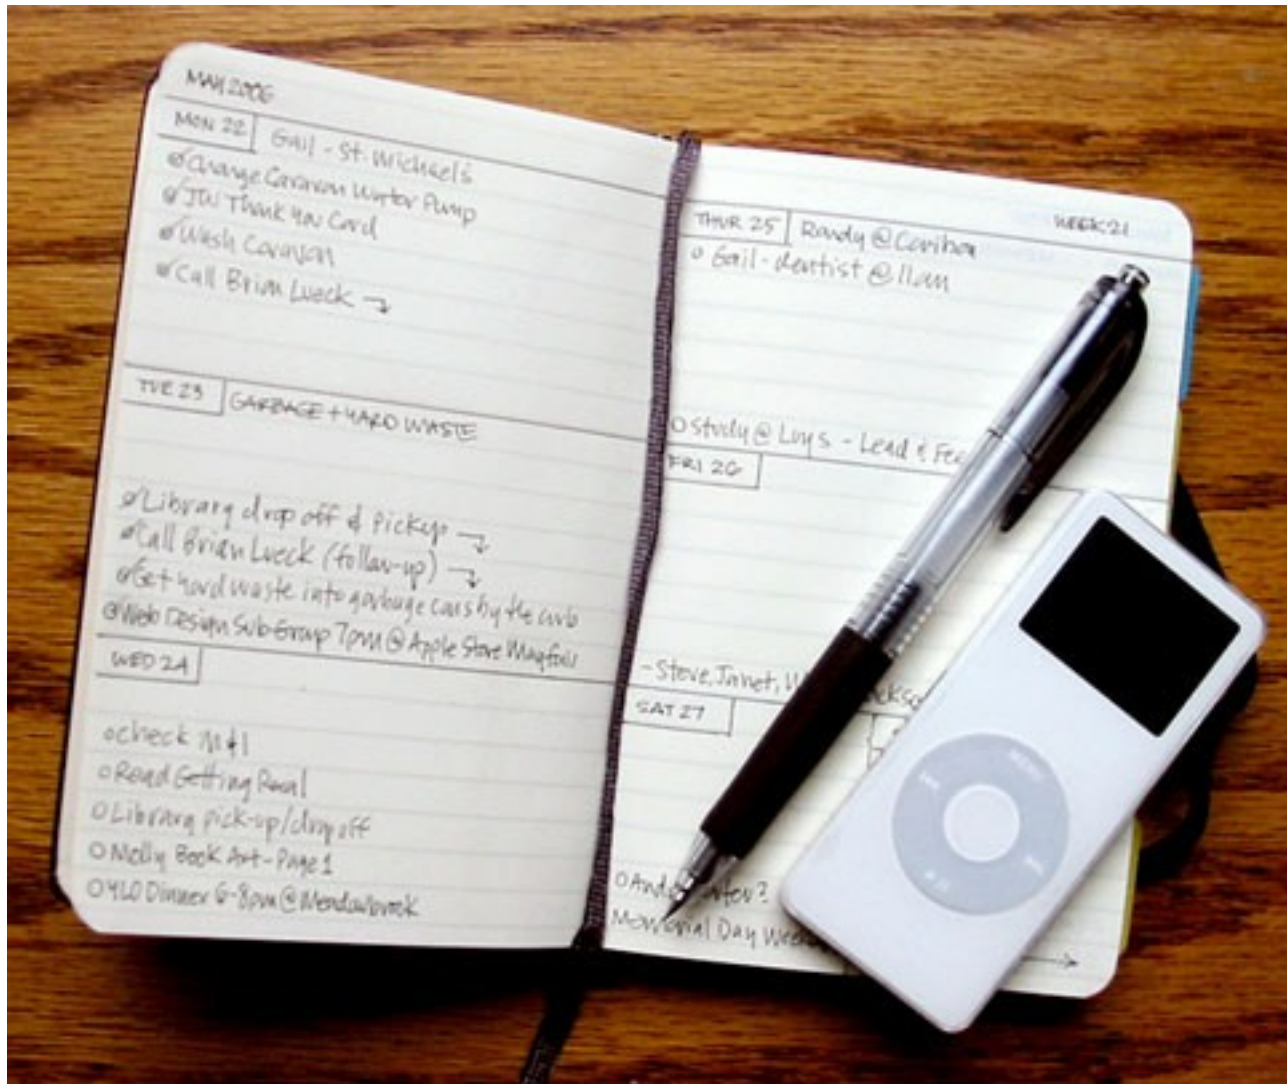 MAY 2006
MON 22 Gail - St. Michael's
Change Caravan Water Pump
JW Thank you Card
Wash Caravan
Call Brian Lueck →
TUE 23 GARBAGE + YARD WASTE
Library drop off & pickup →
Call Brian Lueck (follow-up) →
Get yard waste into garbage cans by the curb
Web Design Sub-Group 7pm @ Apple Store Mayfair
WED 24
check M&I
Read Getting Real
Library pick-up/dropoff
Molly Book Art - Page 1
YLO Dinner 6-8pm @ Meadowbrook
WEEK 21
THUR 25 Randy @ Caribou
Gail - dentist @ 11am
Study @ Luy's - Lead &
FRI 26
- Steve, Janet,
SAT 27
Memorial Day
MENU